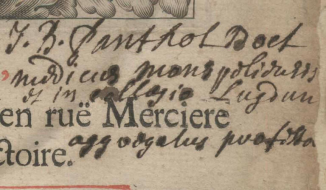 J. B. Panthot Doct
medicus monspeliensis
et in collegio Lugdun
en ruë Merciere
aggregatus professor
ctoire.